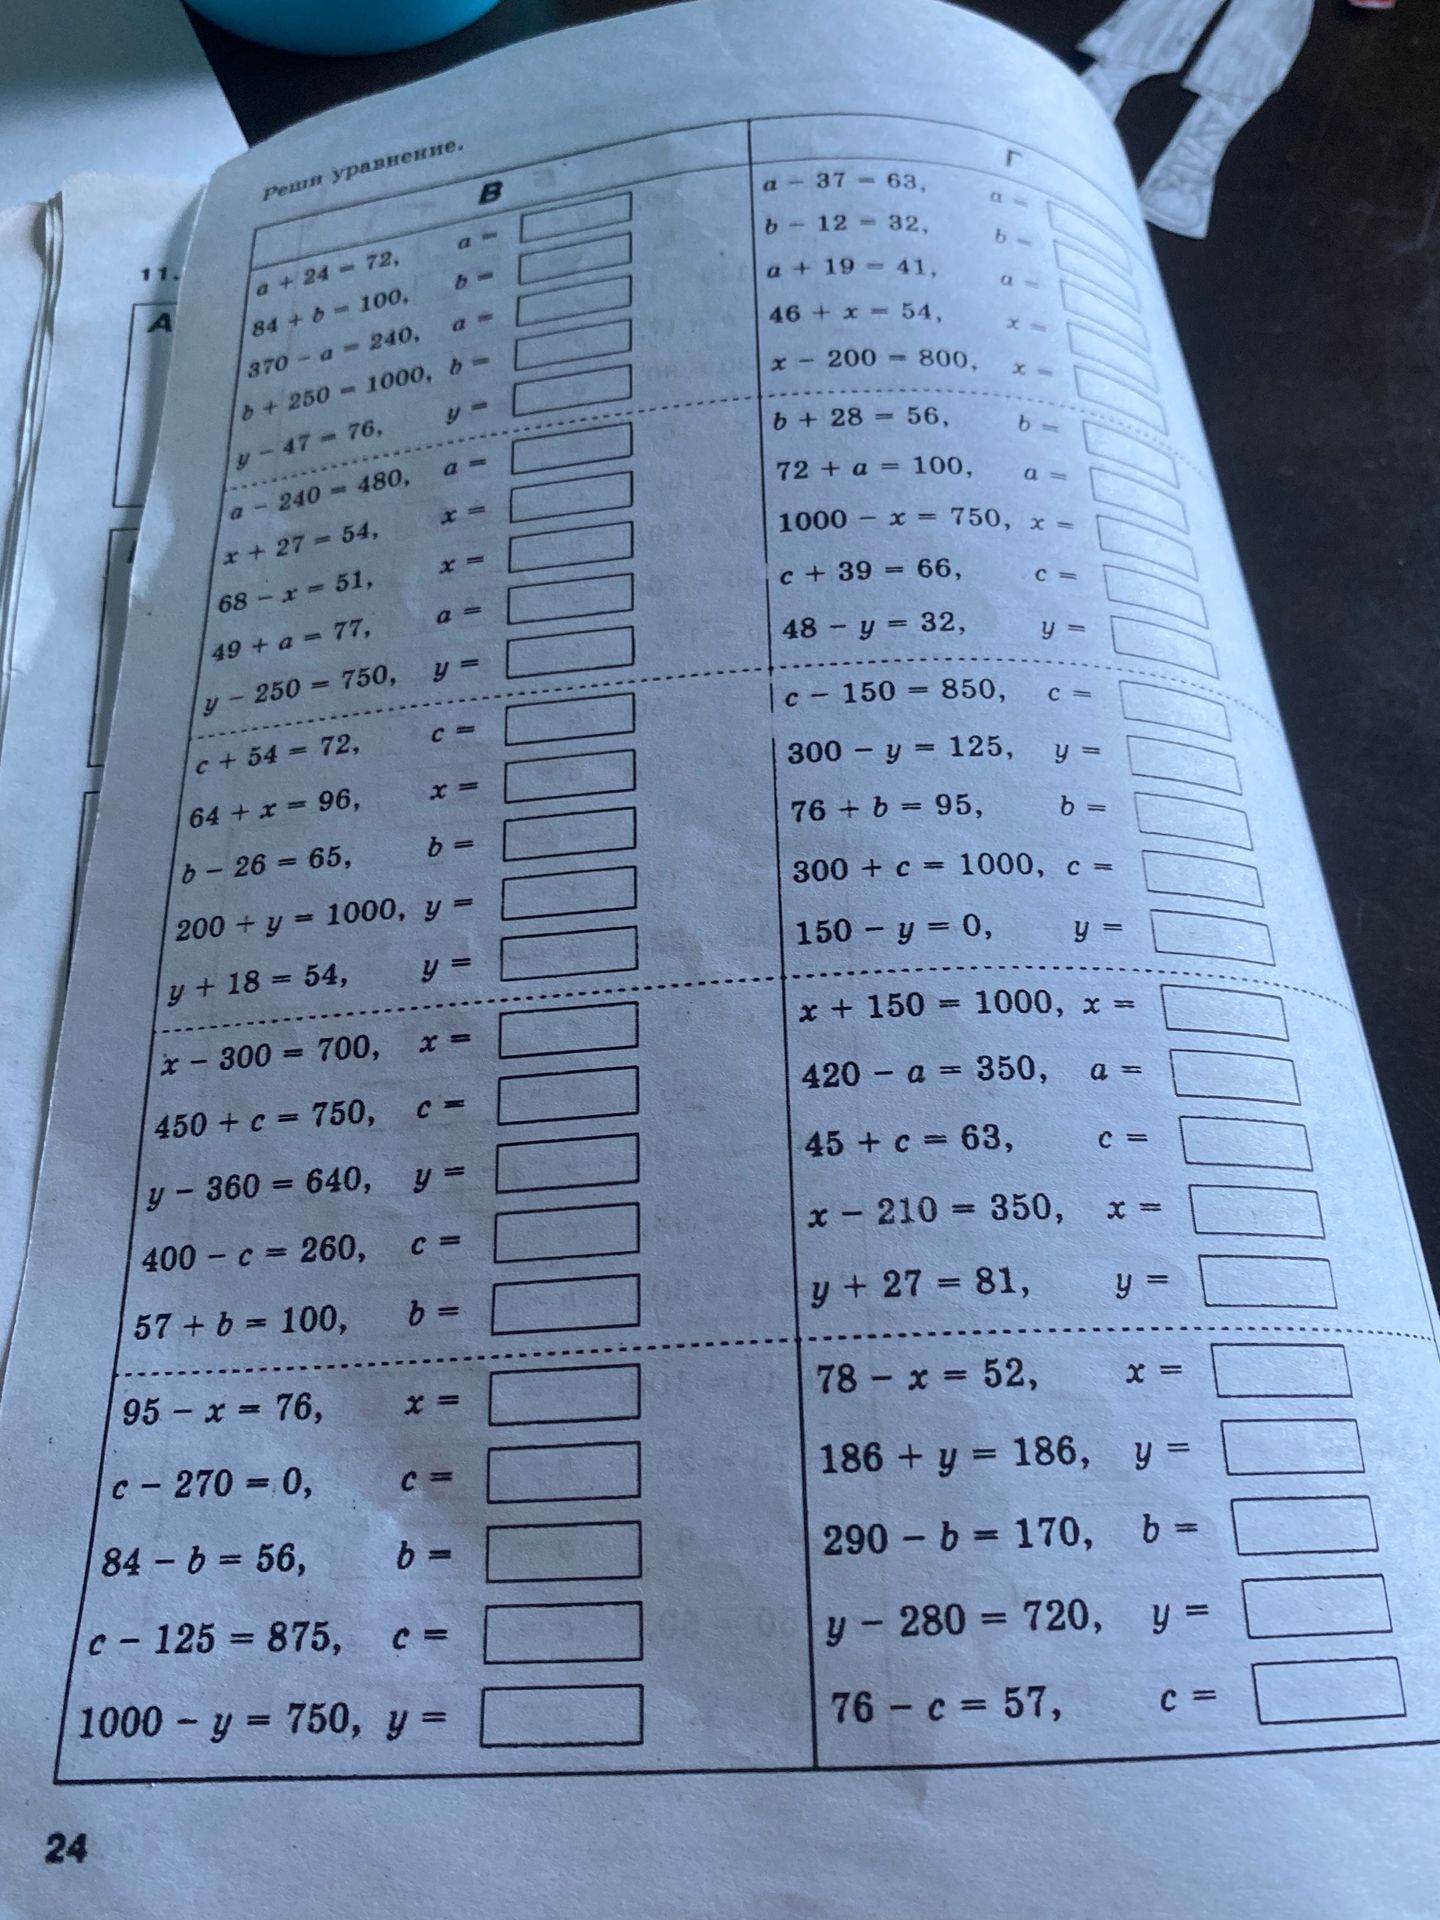 Реши уравнение.
11.
А
В
a + 24 = 72, a =
84 + b = 100, b =
370 − a = 240, a =
b + 250 = 1000, b =
y − 47 = 76, y =
a − 240 = 480, a =
x + 27 = 54, x =
68 − x = 51, x =
49 + a = 77, a =
y − 250 = 750, y =
c + 54 = 72, c =
64 + x = 96, x =
b − 26 = 65, b =
200 + y = 1000, y =
y + 18 = 54, y =
x − 300 = 700, x =
450 + c = 750, c =
y − 360 = 640, y =
400 − c = 260, c =
57 + b = 100, b =
95 − x = 76, x =
c − 270 = 0, c =
84 − b = 56, b =
c − 125 = 875, c =
1000 − y = 750, y =
Г
a − 37 = 63, a =
b − 12 = 32, b =
a + 19 = 41, a =
46 + x = 54, x =
x − 200 = 800, x =
b + 28 = 56, b =
72 + a = 100, a =
1000 − x = 750, x =
c + 39 = 66, c =
48 − y = 32, y =
c − 150 = 850, c =
300 − y = 125, y =
76 + b = 95, b =
300 + c = 1000, c =
150 − y = 0, y =
x + 150 = 1000, x =
420 − a = 350, a =
45 + c = 63, c =
x − 210 = 350, x =
y + 27 = 81, y =
78 − x = 52, x =
186 + y = 186, y =
290 − b = 170, b =
y − 280 = 720, y =
76 − c = 57, c =
24